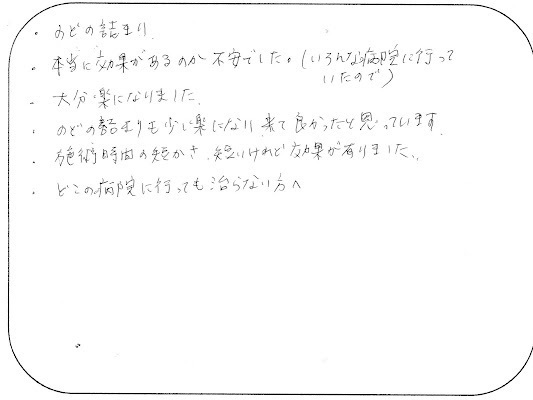 ・のどの詰まり.
・本当に効果があるのか不安でした。(いろんな病院に行って
いたので)
・大分楽になりました.
・のどの詰まりも少し楽になり来て良かったと思っています.
・施術時間の短かさ.短いけれど効果が有りました.
・どこの病院に行っても治らない方へ